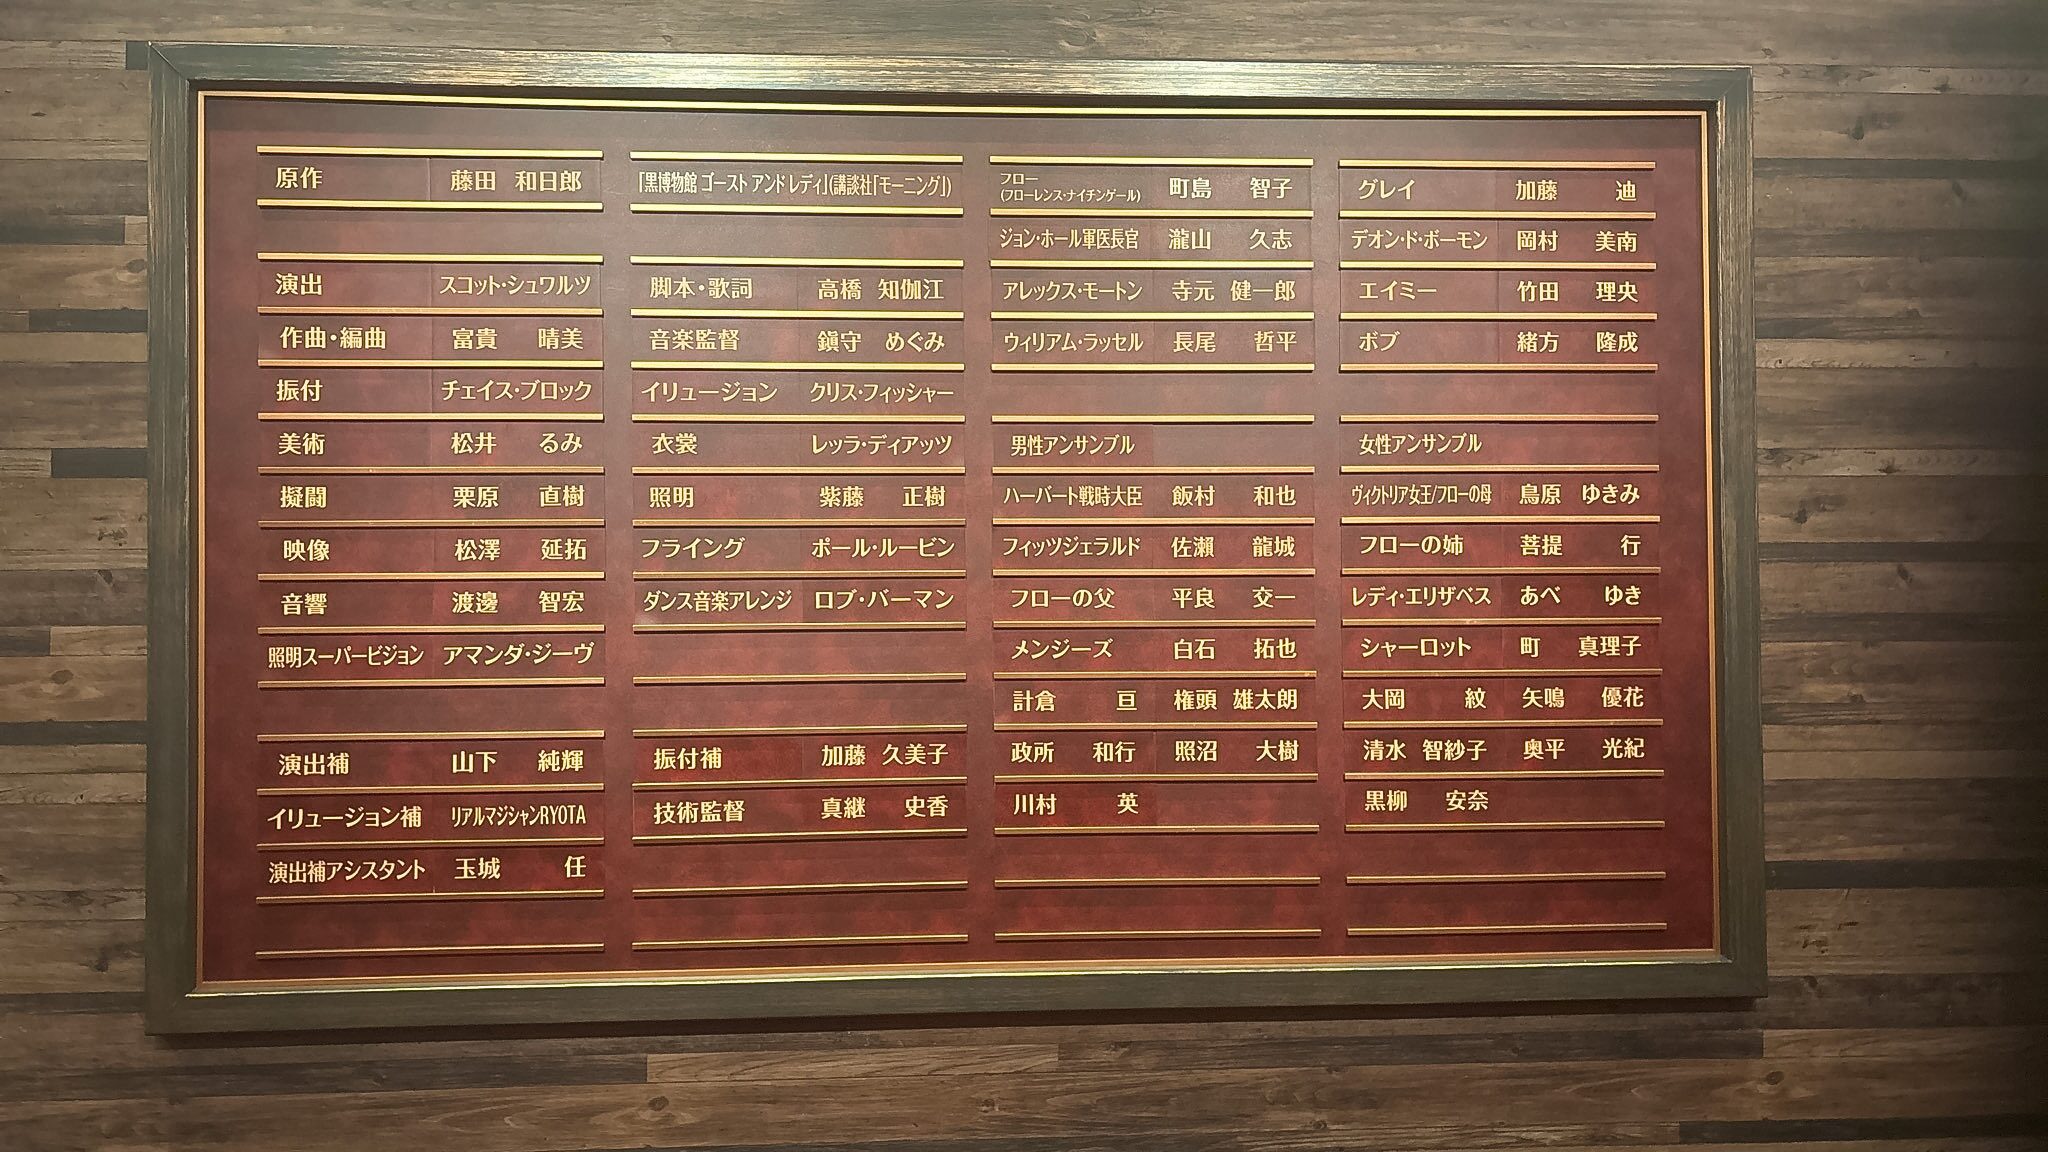 原作 藤田 和日郎
『黒博物館 ゴースト アンド レディ』(講談社「モーニング」)
演出 スコット・シュワルツ
作曲・編曲 富貴 晴美
振付 チェイス・ブロック
美術 松井 るみ
擬闘 栗原 直樹
映像 松澤 延拓
音響 渡邊 智宏
照明スーパービジョン アマンダ・ジーヴ
脚本・歌詞 高橋 知伽江
音楽監督 鎭守 めぐみ
イリュージョン クリス・フィッシャー
衣裳 レッラ・ディアッツ
照明 紫藤 正樹
フライング ポール・ルービン
ダンス音楽アレンジ ロブ・バーマン
演出補 山下 純輝
イリュージョン補 リアルマジシャンRYOTA
演出補アシスタント 玉城 任
振付補 加藤 久美子
技術監督 真継 史香
フロー
(フローレンス・ナイチンゲール) 町島 智子
ジョン・ホール軍医長官 瀧山 久志
アレックス・モートン 寺元 健一郎
ウィリアム・ラッセル 長尾 哲平
グレイ 加藤 迪
デオン・ド・ボーモン 岡村 美南
エイミー 竹田 理央
ボブ 緒方 隆成
男性アンサンブル
ハーバート戦時大臣 飯村 和也
フィッツジェラルド 佐瀬 龍城
フローの父 平良 交一
メンジーズ 白石 拓也
計倉 亘 権頭 雄太朗
政所 和行 照沼 大樹
川村 英
女性アンサンブル
ヴィクトリア女王/フローの母 鳥原 ゆきみ
フローの姉 菩提 行
レディ・エリザベス あべ ゆき
シャーロット 町 真理子
大岡 紋 矢鳴 優花
清水 智紗子 奥平 光紀
黒柳 安奈